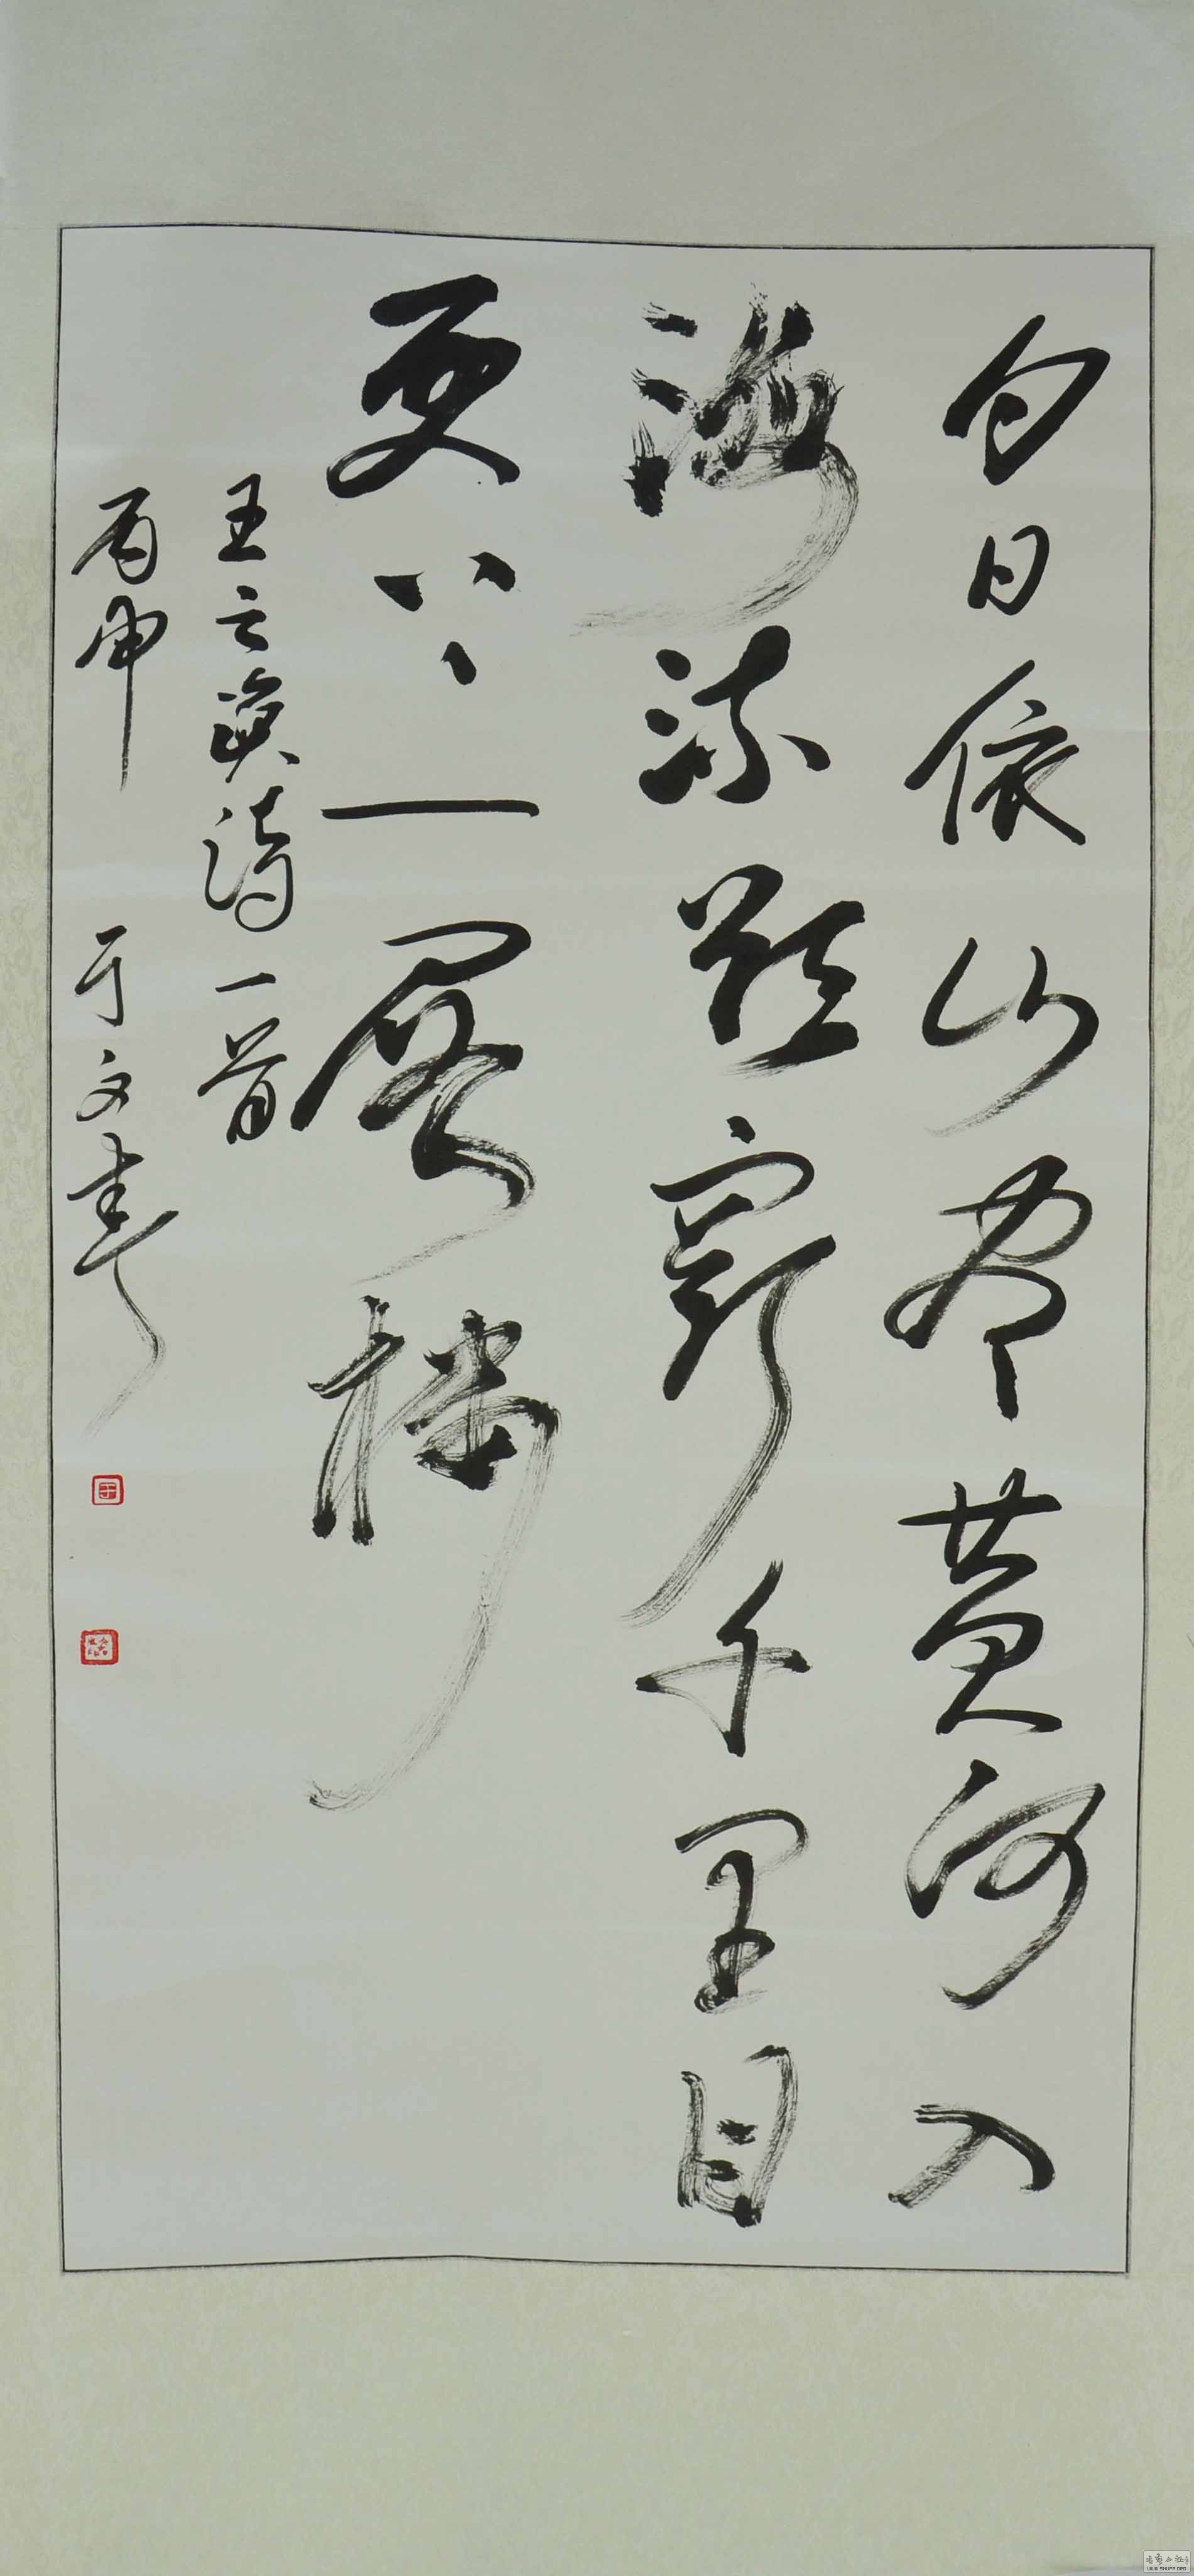 白日依山尽黄河入
海流欲穷千里目
更上一层楼
王之涣诗一首
丙申 于文书
WWW.SHUFA.ORG